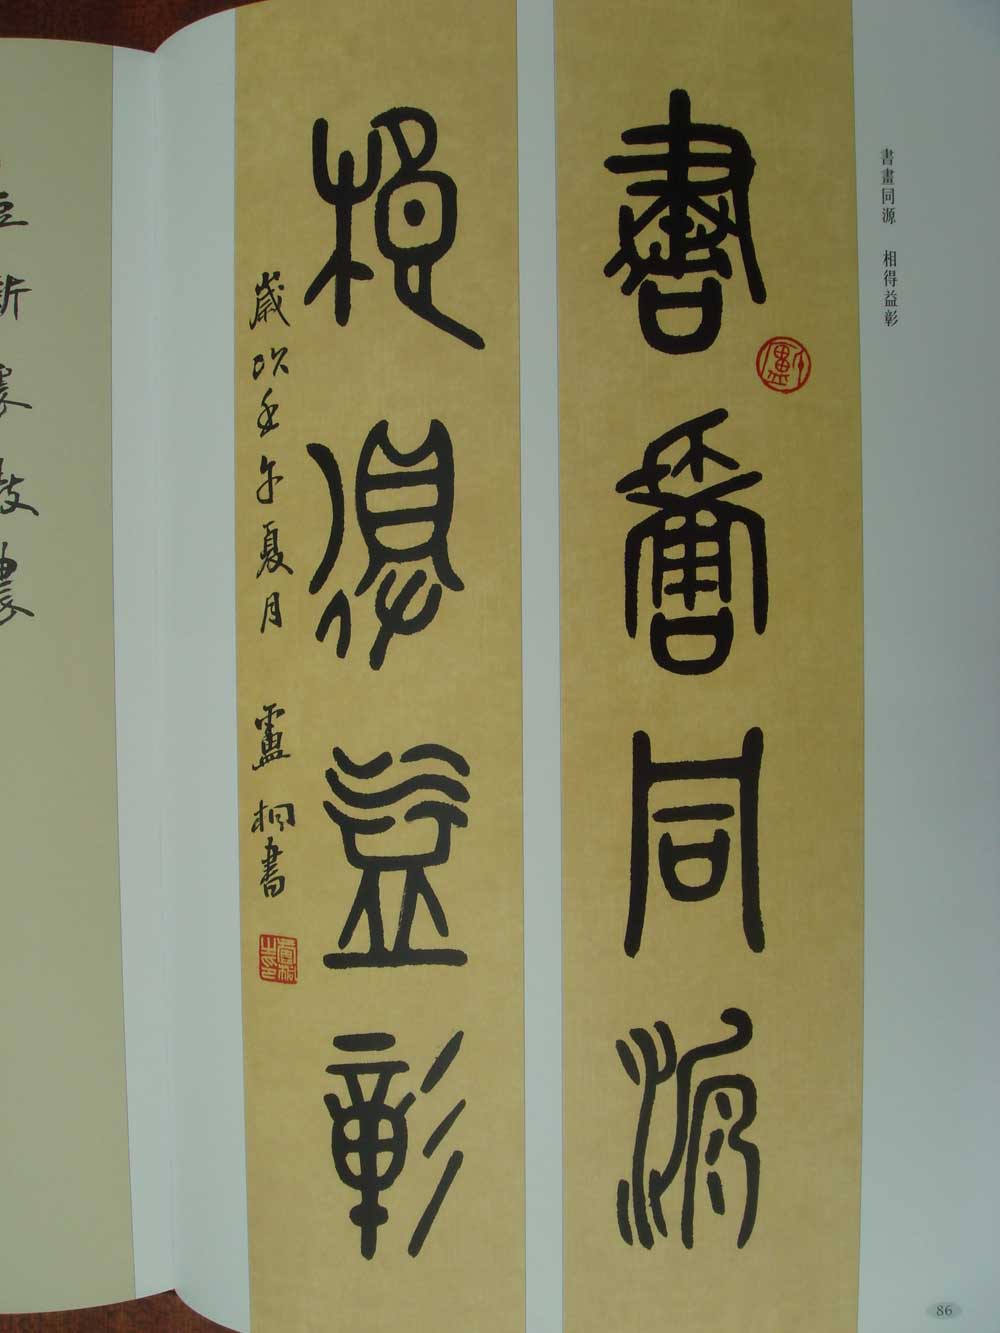 書畫同源　相得益彰
書畫同源
相得益彰
歲次壬午夏月　盧桐書
86